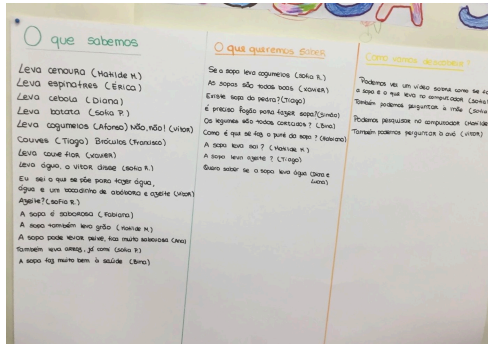 O que sabemos
Leva cenoura (Matilde M.)
Leva espinafres (Érica)
Leva cebola (Diana)
Leva batata (Sofia P.)
Leva cogumelos (Afonso) Não, não! (Vitor)
Couves (Tiago) Brócolos (Francisco)
Leva couve flor (Xavier)
Leva água, o Vitor disse (Sofia R.)
Eu sei o que se põe para fazer água,
água e um bocadinho de abóbora e azeite (Vitor)
Azeite? (Sofia R.)
A sopa é saborosa (Fabiana)
A sopa também leva grão (Matilde M.)
A sopa pode levar peixe, fica muito saborosa (Ana)
Também leva arroz, já comi (Sofia P.)
A sopa faz muito bem à saúde (Bina)
O que queremos saber
Se a sopa leva cogumelos (Sofia R.)
As sopas são todas boas (Xavier)
Existe sopa da pedra? (Tiago)
É preciso fogão para fazer sopa? (Simão)
Os legumes são todos cortados? (Bina)
Como é que se faz o puré da sopa? (Fabiana)
A sopa leva sal? (Matilde M.)
A sopa leva azeite? (Tiago)
Quero saber se a sopa leva água (Diana e
Luna)
Como vamos descobrir?
Podemos ver um vídeo sobre como se faz
a sopa e o que leva no computador (Sofia
Também podemos perguntar à mãe (Sofia
Podemos pesquisar no computador (Matilde
Também podemos perguntar à avó (Vitor)